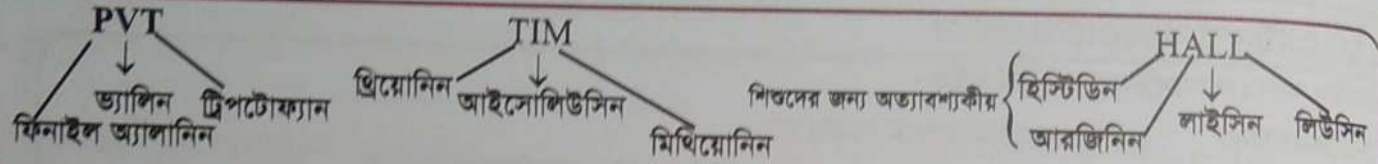 PVT
ফিনাইল অ্যালানিন
ভ্যালিন
ট্রিপটোফ্যান
TIM
থ্রিয়োনিন
আইসোলিউসিন
মিথিয়োনিন
HALL
শিশুদের জন্য অত্যাবশ্যকীয়
হিস্টিডিন
আরজিনিন
লাইসিন
লিউসিন